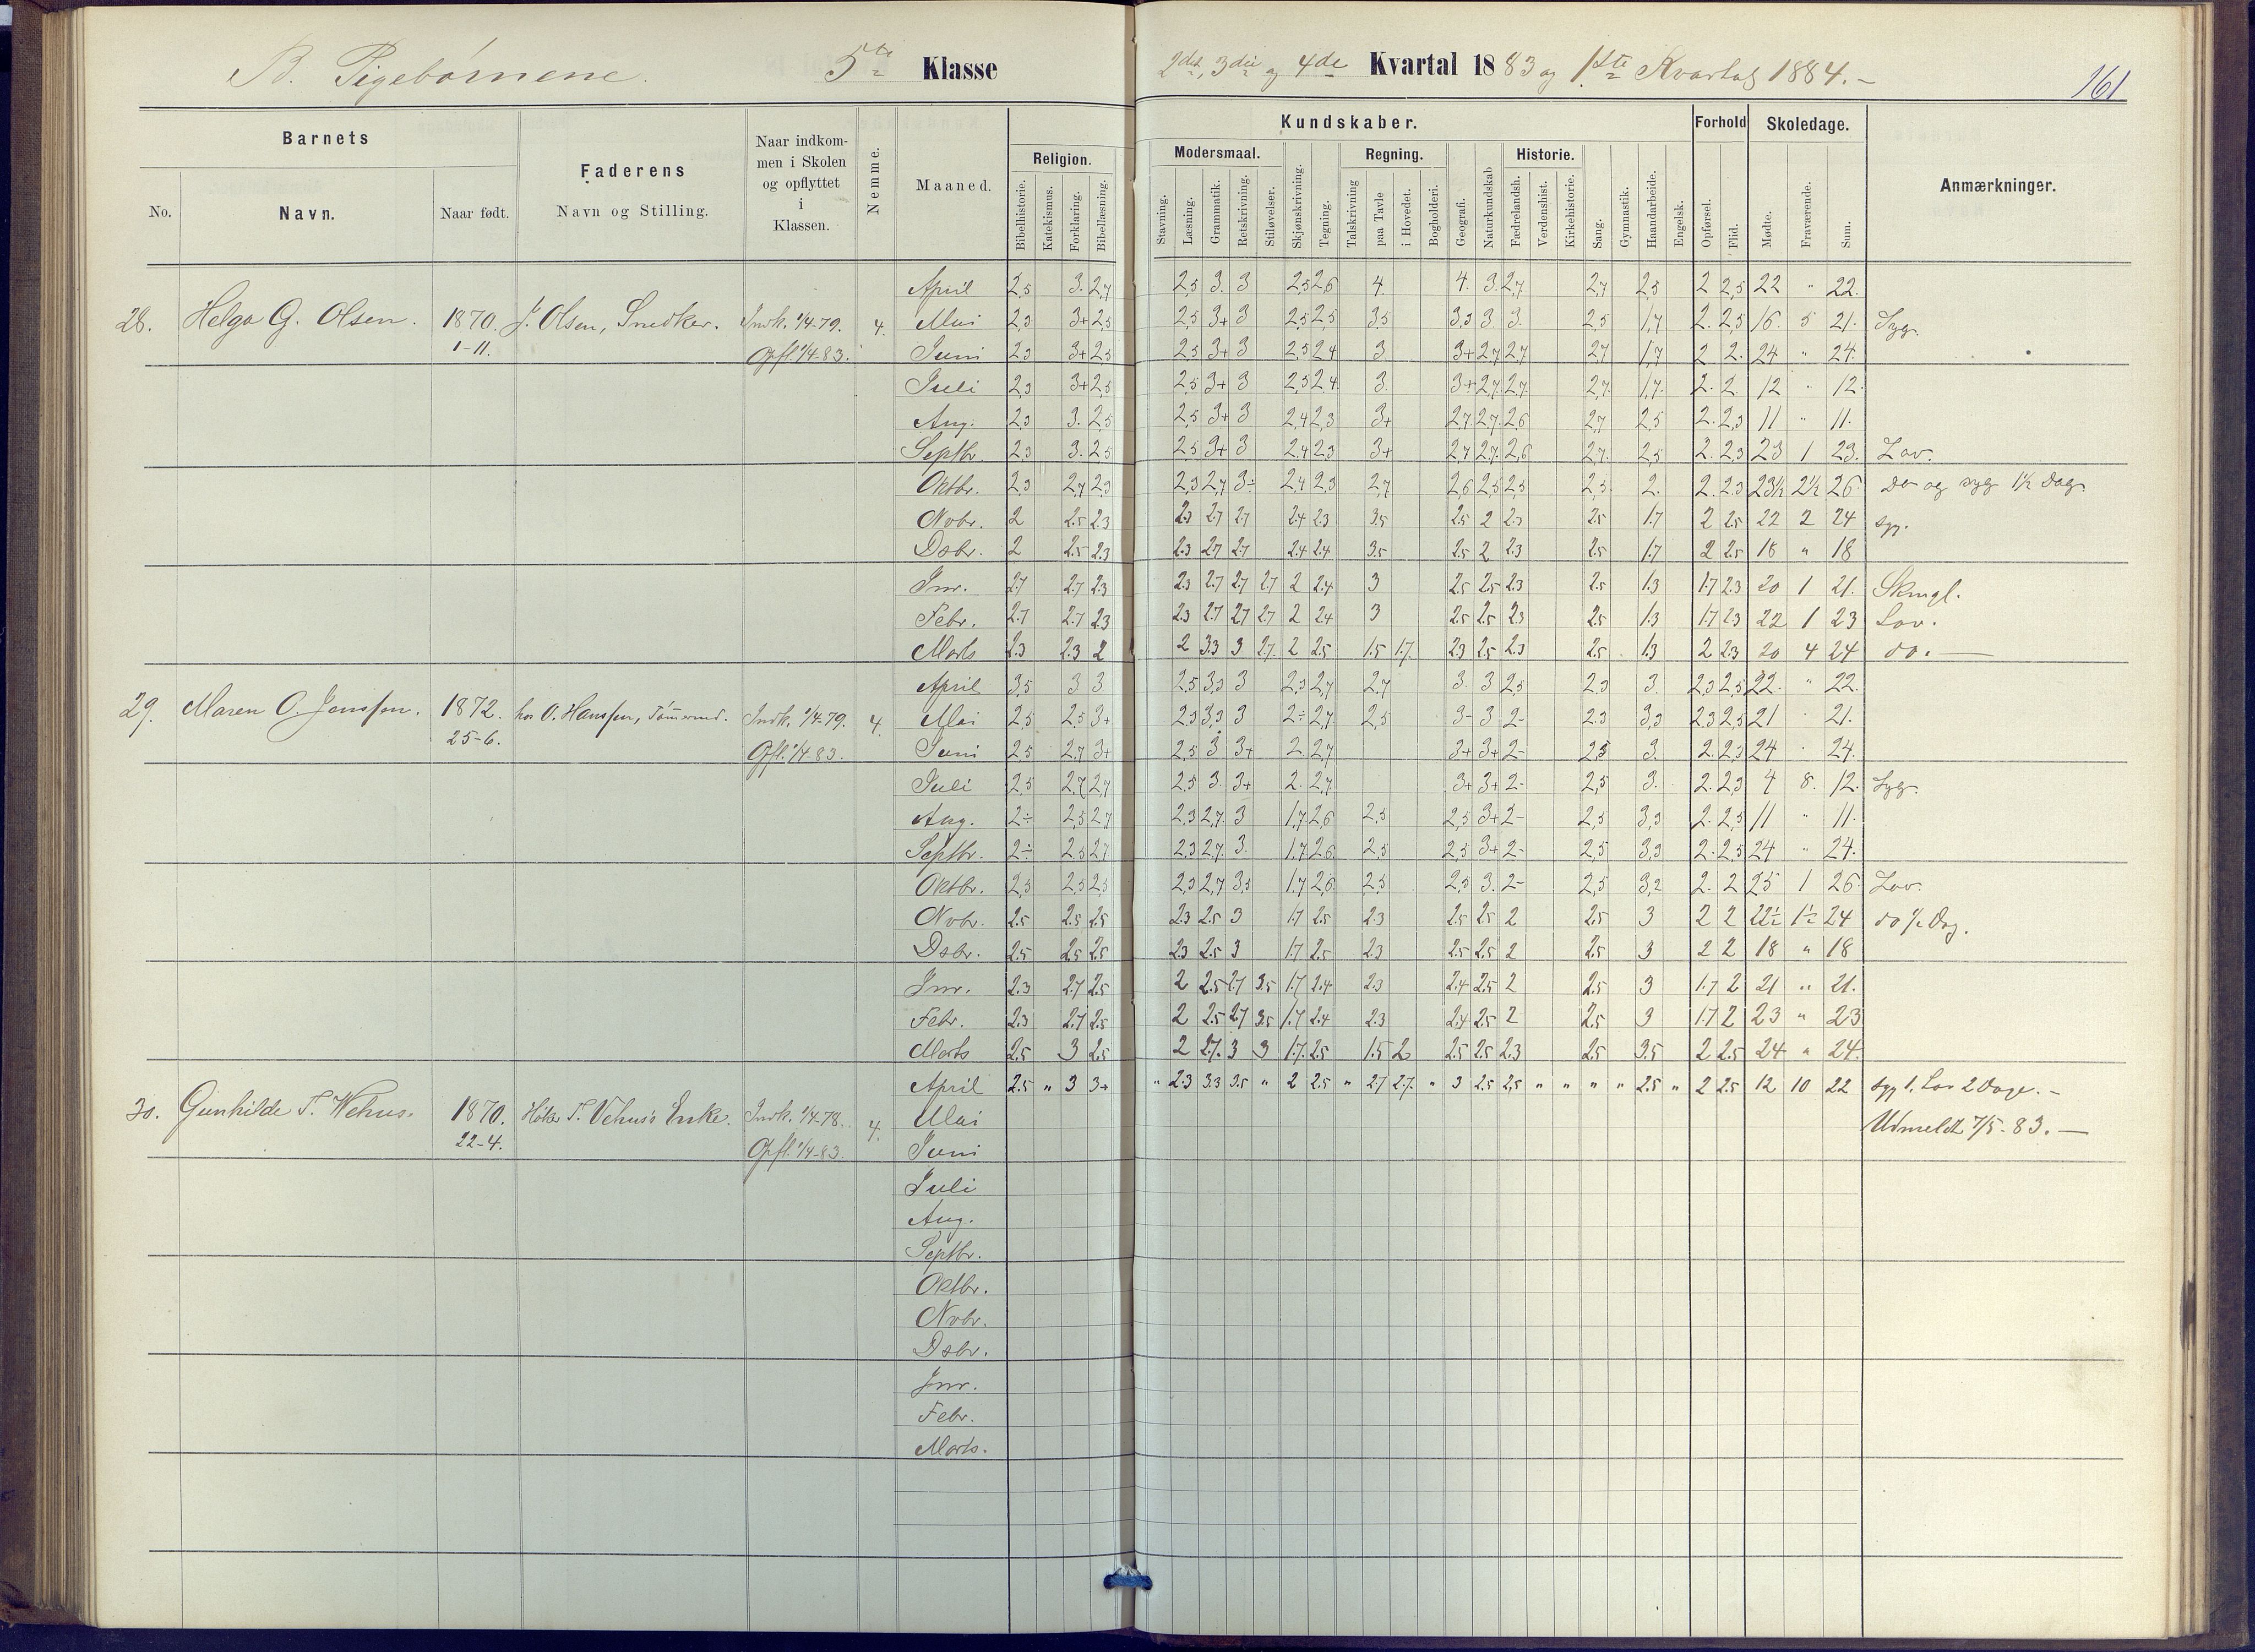 B. Pigebørnene. 5te Klasse 2det, 3die og 4de Kvartal 1883 og 1ste Kvartal 1884.-
161
Barnets
No.
Navn.
Naar født.
Faderens
Navn og Stilling.
Naar indkom-
men i Skolen
og opflyttet
i
Klassen.
Nemme.
Maaned.
Kundskaber.
Religion.
Bibelhistorie.
Katekismus.
Forklaring.
Bibellæsning.
Modersmaal.
Stavning.
Læsning.
Grammatik.
Retskrivning.
Stiløvelser.
Skjønskrivning.
Tegning.
Regning.
Talskrivning
paa Tavle
i Hovedet.
Bogholderi.
Geografi.
Naturkundskab
Historie.
Fædrelandsh.
Verdenshist.
Kirkehistorie.
Sang.
Gymnastik.
Haandarbeide.
Engelsk.
Forhold
Opførsel.
Flid.
Skoledage.
Mødte.
Fraværende.
Sum.
Anmærkninger.
28. Helga G. Olsen. 1870. J. Olsen, Snedker. Indk. 1/4-79. 4.
1-11. Opfl. 1/4-83.
April 2,5 3. 2,7 2,5 3. 3 2,5 2,6 4 4. 3. 2,7 2,7 2,5 2 2,5 22 " 22.
Mai 2,3 3+ 2,5 2,5 3+ 3 2,5 2,5 3,5 3,3 3 3. 2,5 1,7 2. 2,5 16. 5 21. Syg.
Juni 2,3 3+ 2,5 2,5 3+ 3 2,5 2,4 3 3+ 2,7 2,7 2,7 1,7 2 2. 24 " 24.
Juli 2,3 3+ 2,5 2,5 3+ 3 2,5 2,4 3. 3+ 2,7 2,7 2,7 1,7 2. 2. 12 " 12.
Aug. 2,3 3. 2,5 2,5 3+ 3 2,4 2,3 3+ 2,7 2,7 2,6 2,7 2,5 2. 2,3 11 " 11.
Septbr. 2,3 3. 2,5 2,5 3+ 3 2,4 2,3 3+ 2,7 2,7 2,6 2,7 2,5 2. 2,3 23 1 23. Lov.
Oktbr. 2,3 2,7 2,3 2,3 2,7 3÷ 2,4 2,3 2,7 2,6 2,5 2,5 2,5 2. 2. 2,3 23½ 2½ 26. Do og syg 1½ Dag.
Novbr. 2 2.5 2.3 2.3 2.7 2.7 2.4 2.3 3.5 2.5 2 2.3 2.5 1.7 2 2.5 22 2 24 syg.
Dsbr. 2 2.5 2.3 2.3 2.7 2.7 2.4 2.4 3.5 2.5 2 2.3 2.5 1.7 2 2.5 18 " 18
Jnr. 2.7 2.7 2.3 2.3 2.7 2.7 2.7 2 2.4 3 2.5 2.5 2.3 2.5 1.3 1.7 2.3 20 1 21. Skmgl.
Febr. 2.7 2.7 2.3 2.3 2.7 2.7 2.7 2 2.4 3 2.5 2.5 2.3 2.5 1.3 1.7 2.3 22 1 23 Lov.
Marts 2.3 2.3 2 2 3.3 3 2.7 2 2.5 1.5 1.7 2.3 2.5 2.3 2.5 1.3 2 2.3 20 4 24 do. —
29. Maren O. Jenssen. 1872. hos O. Hanssen, Tømmermd. Indk. 1/4-79. 4.
25-6. Opfl. 1/4-83.
April 3,5 3 3 2,5 3,3 3 2,3 2,7 2,7 3. 3 2,5 2,3 3. 2,3 2,5 22. " 22.
Mai 2,5 2,5 3+ 2,5 3,3 3 2÷ 2,7 2,5 3- 3 2- 2,3 3,3 2,3 2,5 21 " 21.
Juni 2,5 2,7 3+ 2,5 3 3+ 2. 2,7 3+ 3+ 2- 2,5 3. 2. 2,3 24 " 24.
Juli 2,5 2,7 2,7 2,5 3. 3+ 2. 2,7 3+ 3+ 2- 2,5 3. 2. 2,3 4 8. 12. Syg.
Aug. 2÷ 2,5 2,7 2,3 2,7 3 1,7 2,6 2,5 2,5 3+ 2- 2,5 3,3 2. 2,5 11 " 11.
Septbr. 2÷ 2,5 2,7 2,3 2,7 3. 1,7 2,6 2,5 2,5 3+ 2- 2,5 3,3 2. 2,5 24 " 24.
Oktbr. 2,5 2,5 2,5 2,3 2,7 3,5 1,7 2,6 2,5 2,5 3. 2- 2,5 3,2 2. 2 25 1 26. Lov.
Novbr. 2.5 2.5 2.5 2.3 2.5 3 1.7 2.5 2.3 2.5 2.5 2 2.5 3 2 2 22½ 1½ 24 do ½ Dag.
Dsbr. 2.5 2.5 2.5 2.3 2.5 3 1.7 2.5 2.3 2.5 2.5 2 2.5 3 2 2 18 " 18
Jnr. 2.3 2.7 2.5 2 2.5 2.7 3.5 1.7 2.4 2.3 2.4 2.5 2 2.5 3 1.7 2 21 " 21.
Febr. 2.3 2.7 2.5 2 2.5 2.7 3.5 1.7 2.4 2.3 2.4 2.5 2 2.5 3 1.7 2 23 " 23
Marts 2.5 3 2.5 2 2.7. 3 3 1.7 2.5 1.5 2 2.5 2.5 2.3 2.5 3.5 2 2.5 24 " 24.
30. Gunhilde T. Wehus. 1870. Høker T. Vehus's Enke. Indk. 1/4-78. 4.
22-4. Opfl. 1/4-83.
April 2.5 " 3 3+ " 2.3 3.3 3.5 " 2 2.5 " 2.7 2.7 " 3 2.5 2.5 " " " " 2.5 " 2 2.5 12 10 22 syg 1. Lov 2 Dage.-
Mai Udmeldt 7/5-83.—
Juni
Juli
Aug.
Septbr.
Oktbr.
Novbr.
Dsbr.
Jnr.
Febr.
Marts.